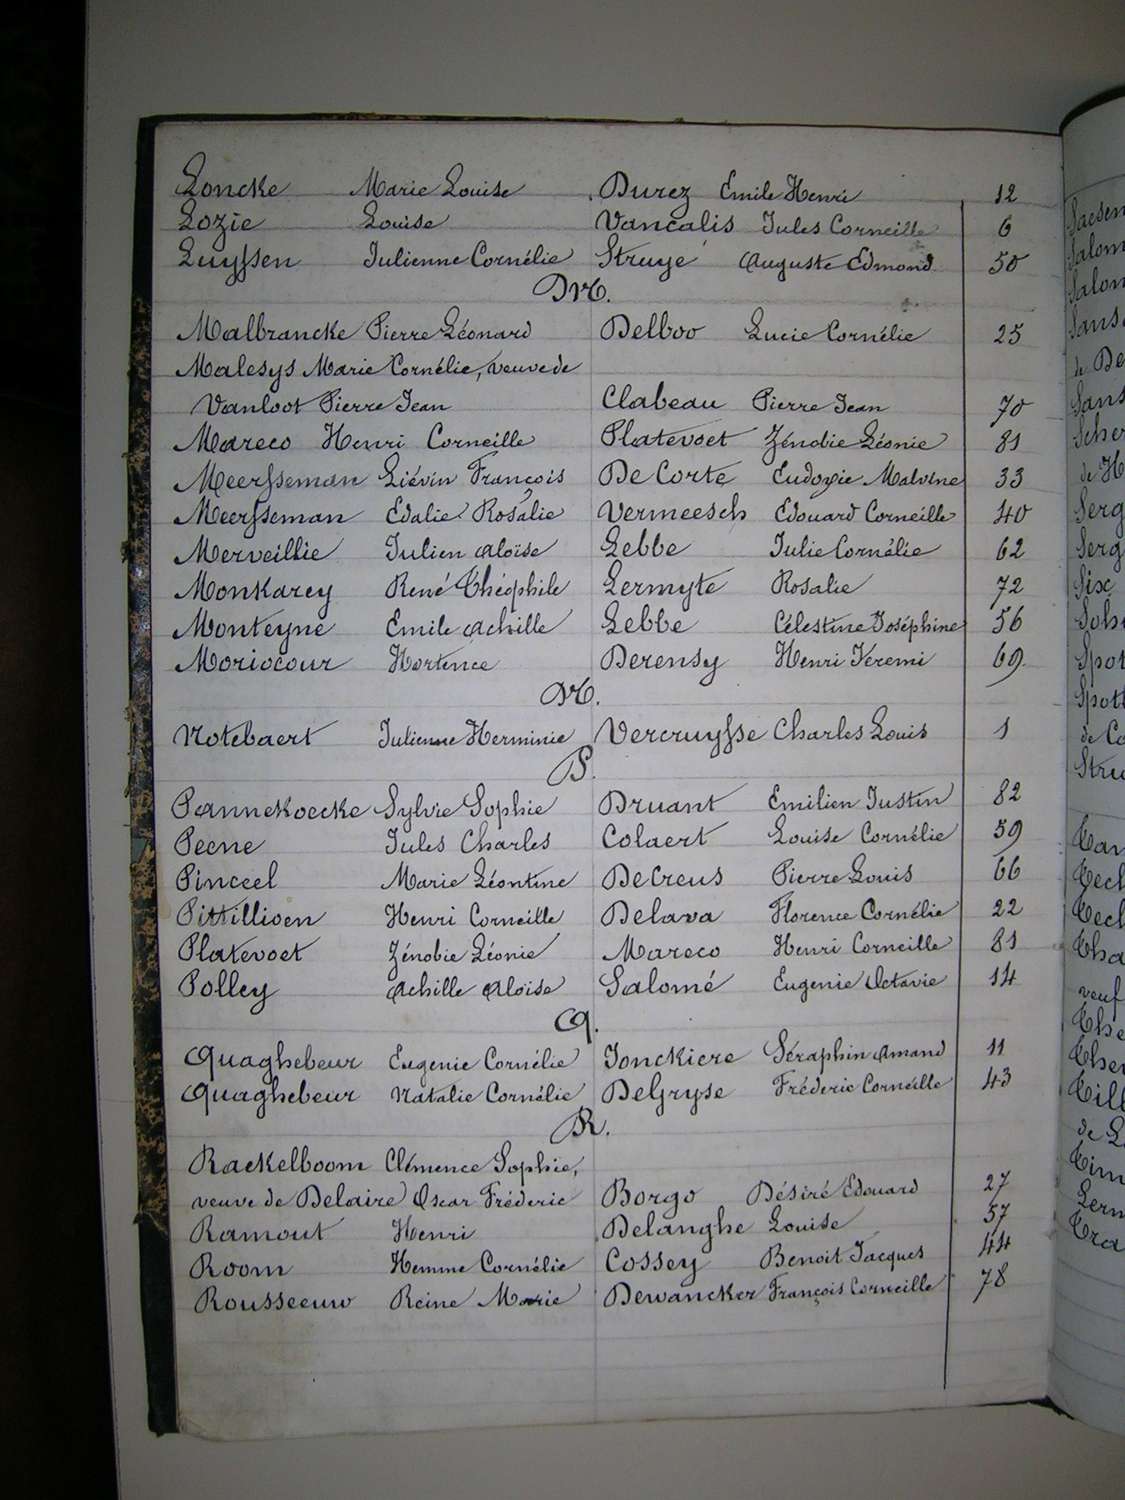 Loncke Marie Louise Durez Emile Henri 12
Lozie Louise Vancalis Jules Corneille 6
Luyssen Julienne Cornélie Struyé Auguste Edmond 50
M.
Malbrancke Pierre Léonard Delboo Lucie Cornélie 25
Malesys Marie Cornélie, veuve de
Vanloot Pierre Jean Clabeau Pierre Jean 70
Mareco Henri Corneille Platevoet Zénobie Léonie 81
Meersseman Liévin François De Corte Eudoxie Malvine 33
Meersseman Edalie Rosalie Vermeesch Edouard Corneille 40
Merveillie Julien Aloïse Lebbe Julie Cornélie 62
Monkarey René Théophile Lermyte Rosalie 72
Monteyne Emile Achille Lebbe Célestine Joséphine 56
Moriocour Hortence Derensy Henri Jeremi 69
N.
Notebaert Julienne Herminie Vercruysse Charles Louis 1
P.
Pannekoecke Sylvie Sophie Druant Emilien Justin 82
Pecne Jules Charles Colaert Louise Cornélie 59
Pinceel Marie Léontine DeCreus Pierre Louis 66
Pittillioen Henri Corneille Delava Florence Cornélie 22
Platevoet Zénobie Léonie Mareco Henri Corneille 81
Polley Achille Aloïse Salomé Eugenie Octavie 14
Q.
Quaghebeur Eugenie Cornélie Jonckiere Séraphin Amand 11
Quaghebeur Natalie Cornélie DeGryse Fréderic Corneille 43
R.
Rackelboom Clémence Sophie,
veuve de Delaire Oscar Fréderic Borgo Désiré Edouard 27
Ramout Henri Delanghe Louise 57
Room Hemme Cornélie Cossey Benoit Jacques 44
Rousseeuw Reine Marie Dewancker François Corneille 78